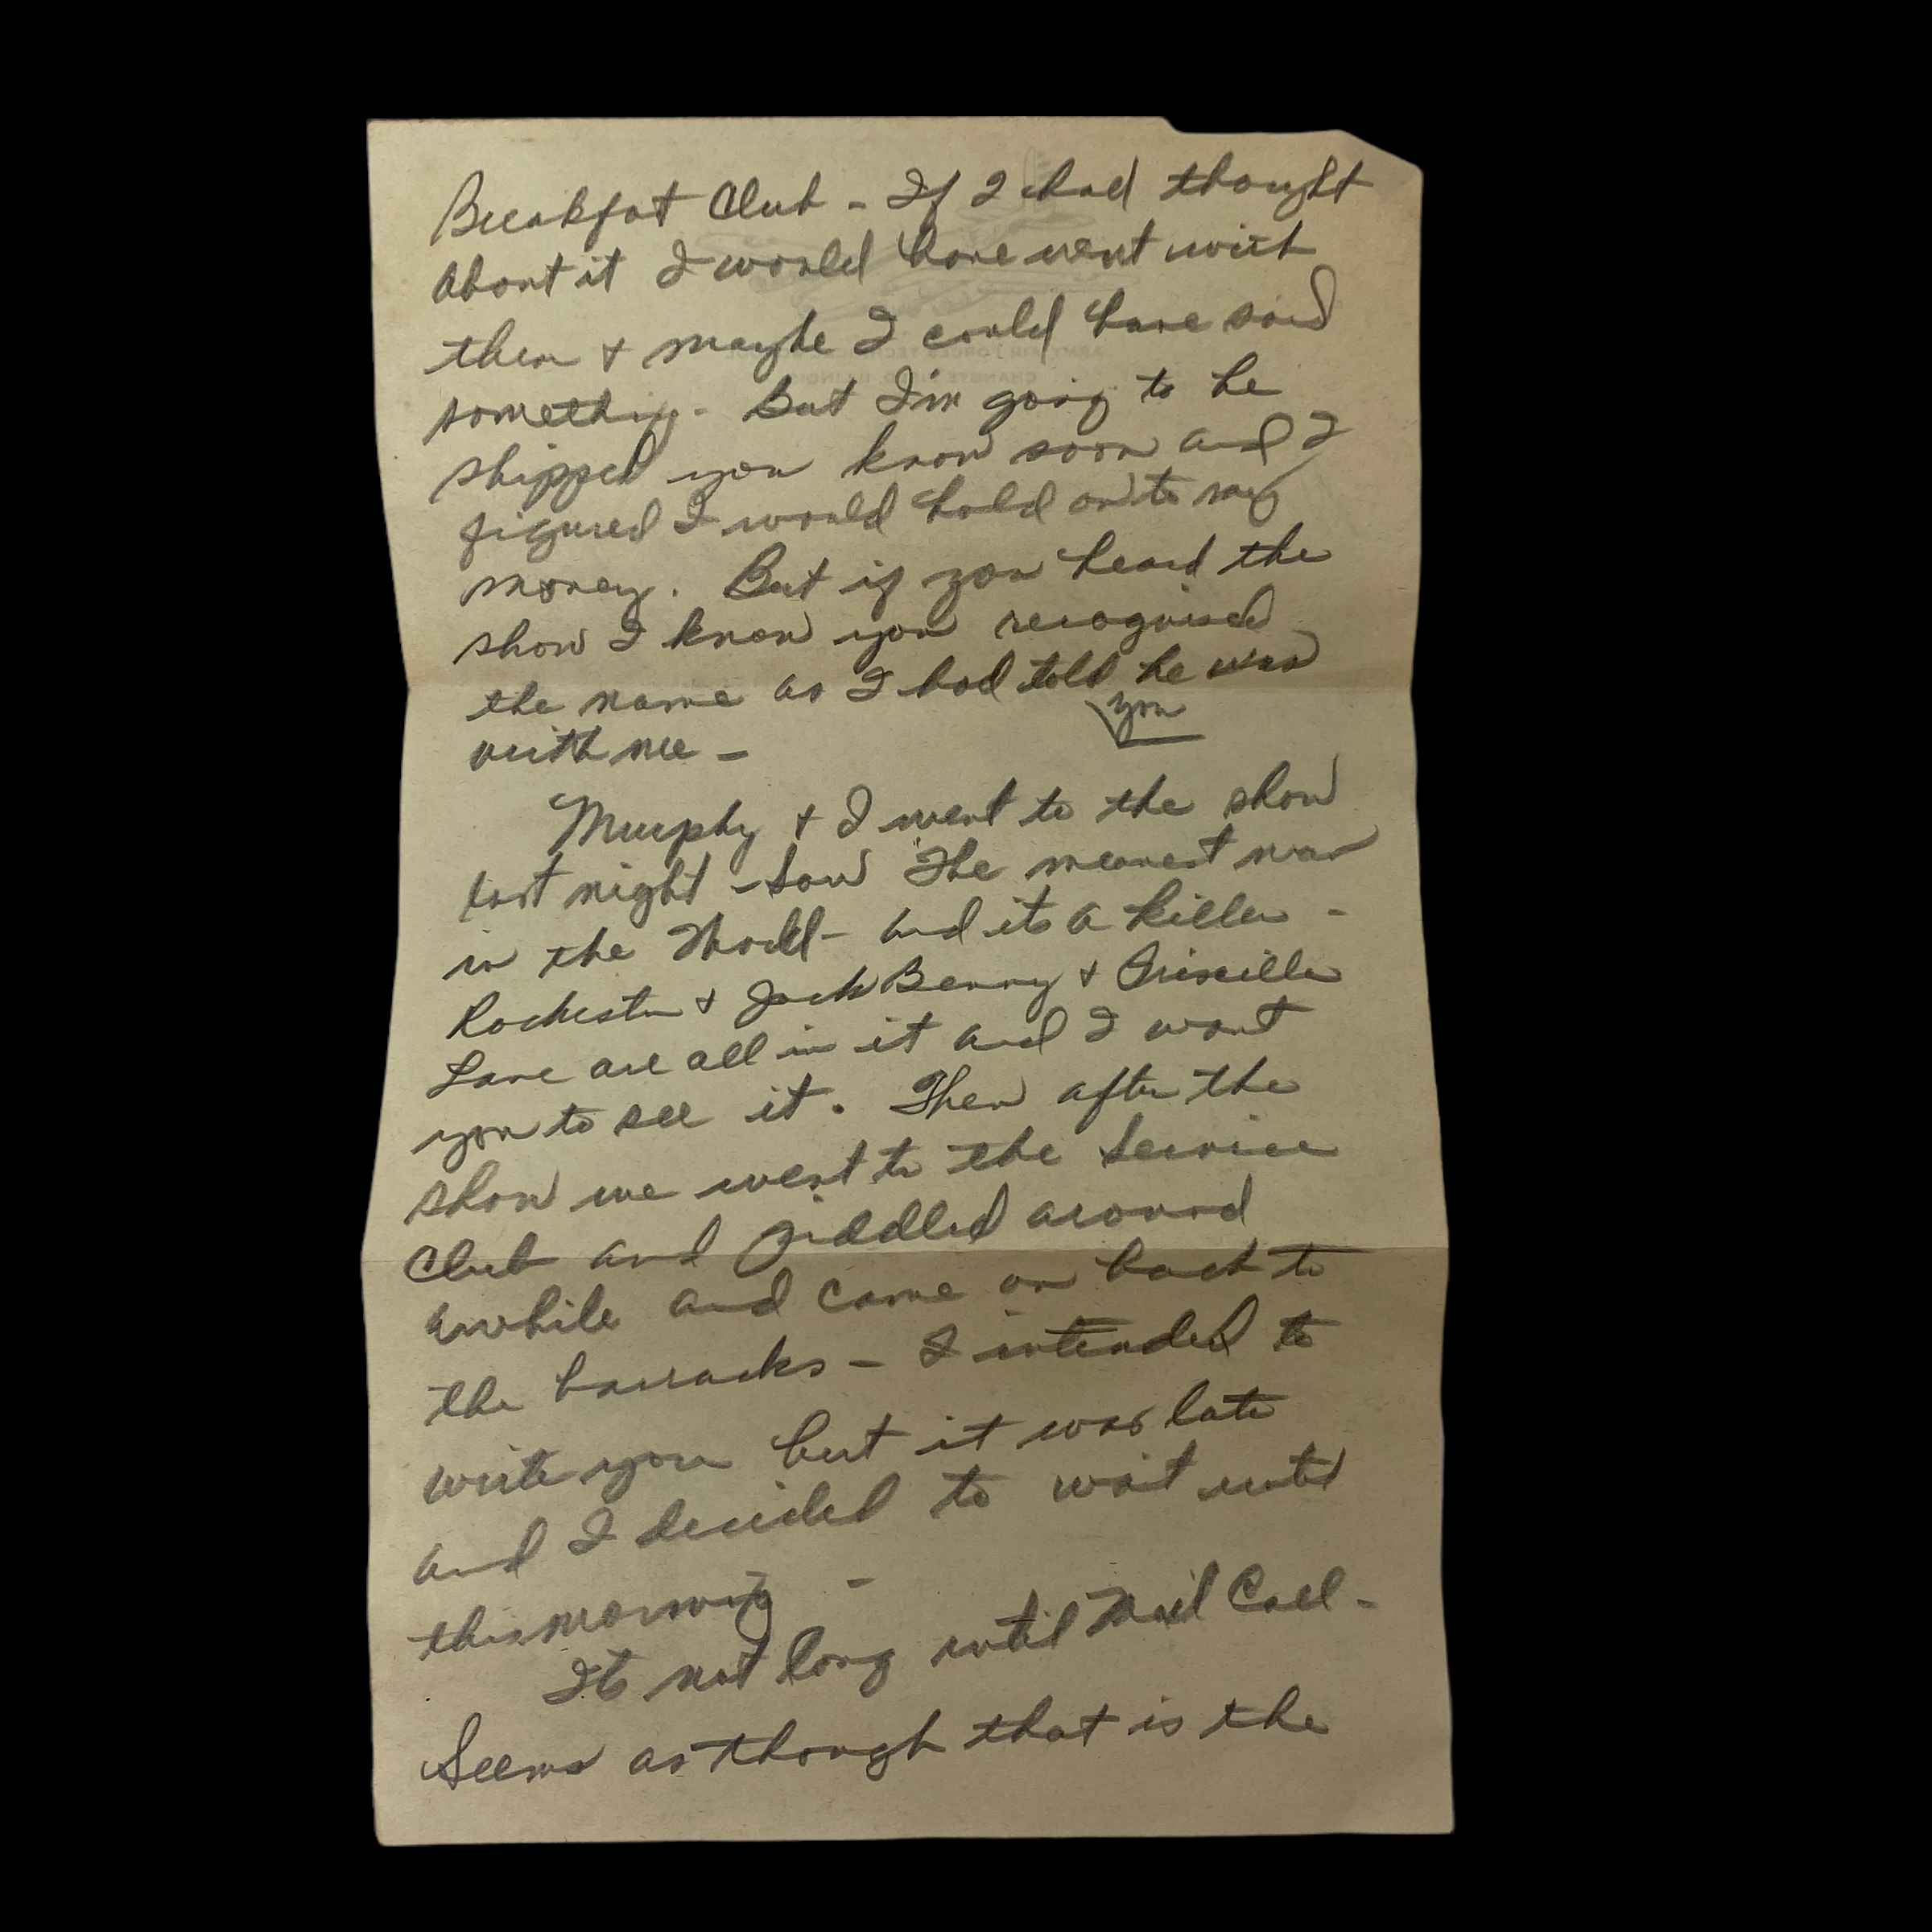 Breakfat Club - If I had thought
about it I would have went with
them + maybe I could have said
something - But I'm going to be
shipped you know soon and I
figured I would hold on to my
money. But if you heard the
show I know you recognized
the name as I had told he was
you
with me -
Murphy + I went to the show
last night - Saw The meanest man
in the World - and its a killer -
Rochester + Jack Benny + Priscilla
Lane are all in it and I want
you to see it. Then after the
show we went to the Service
Club and fiddled around
awhile and came on back to
the barracks - I intended to
write you but it was late
and I decided to wait until
this morning -
Its not long until Mail Call -
Seems as though that is the